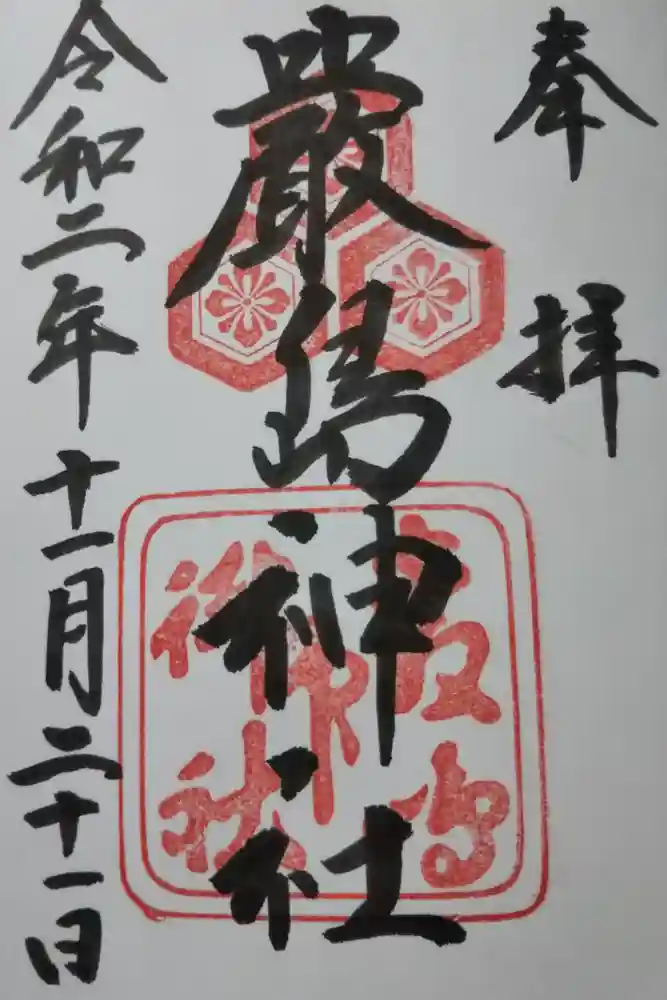 奉拝
嚴島神社
令和二年十一月二十一日